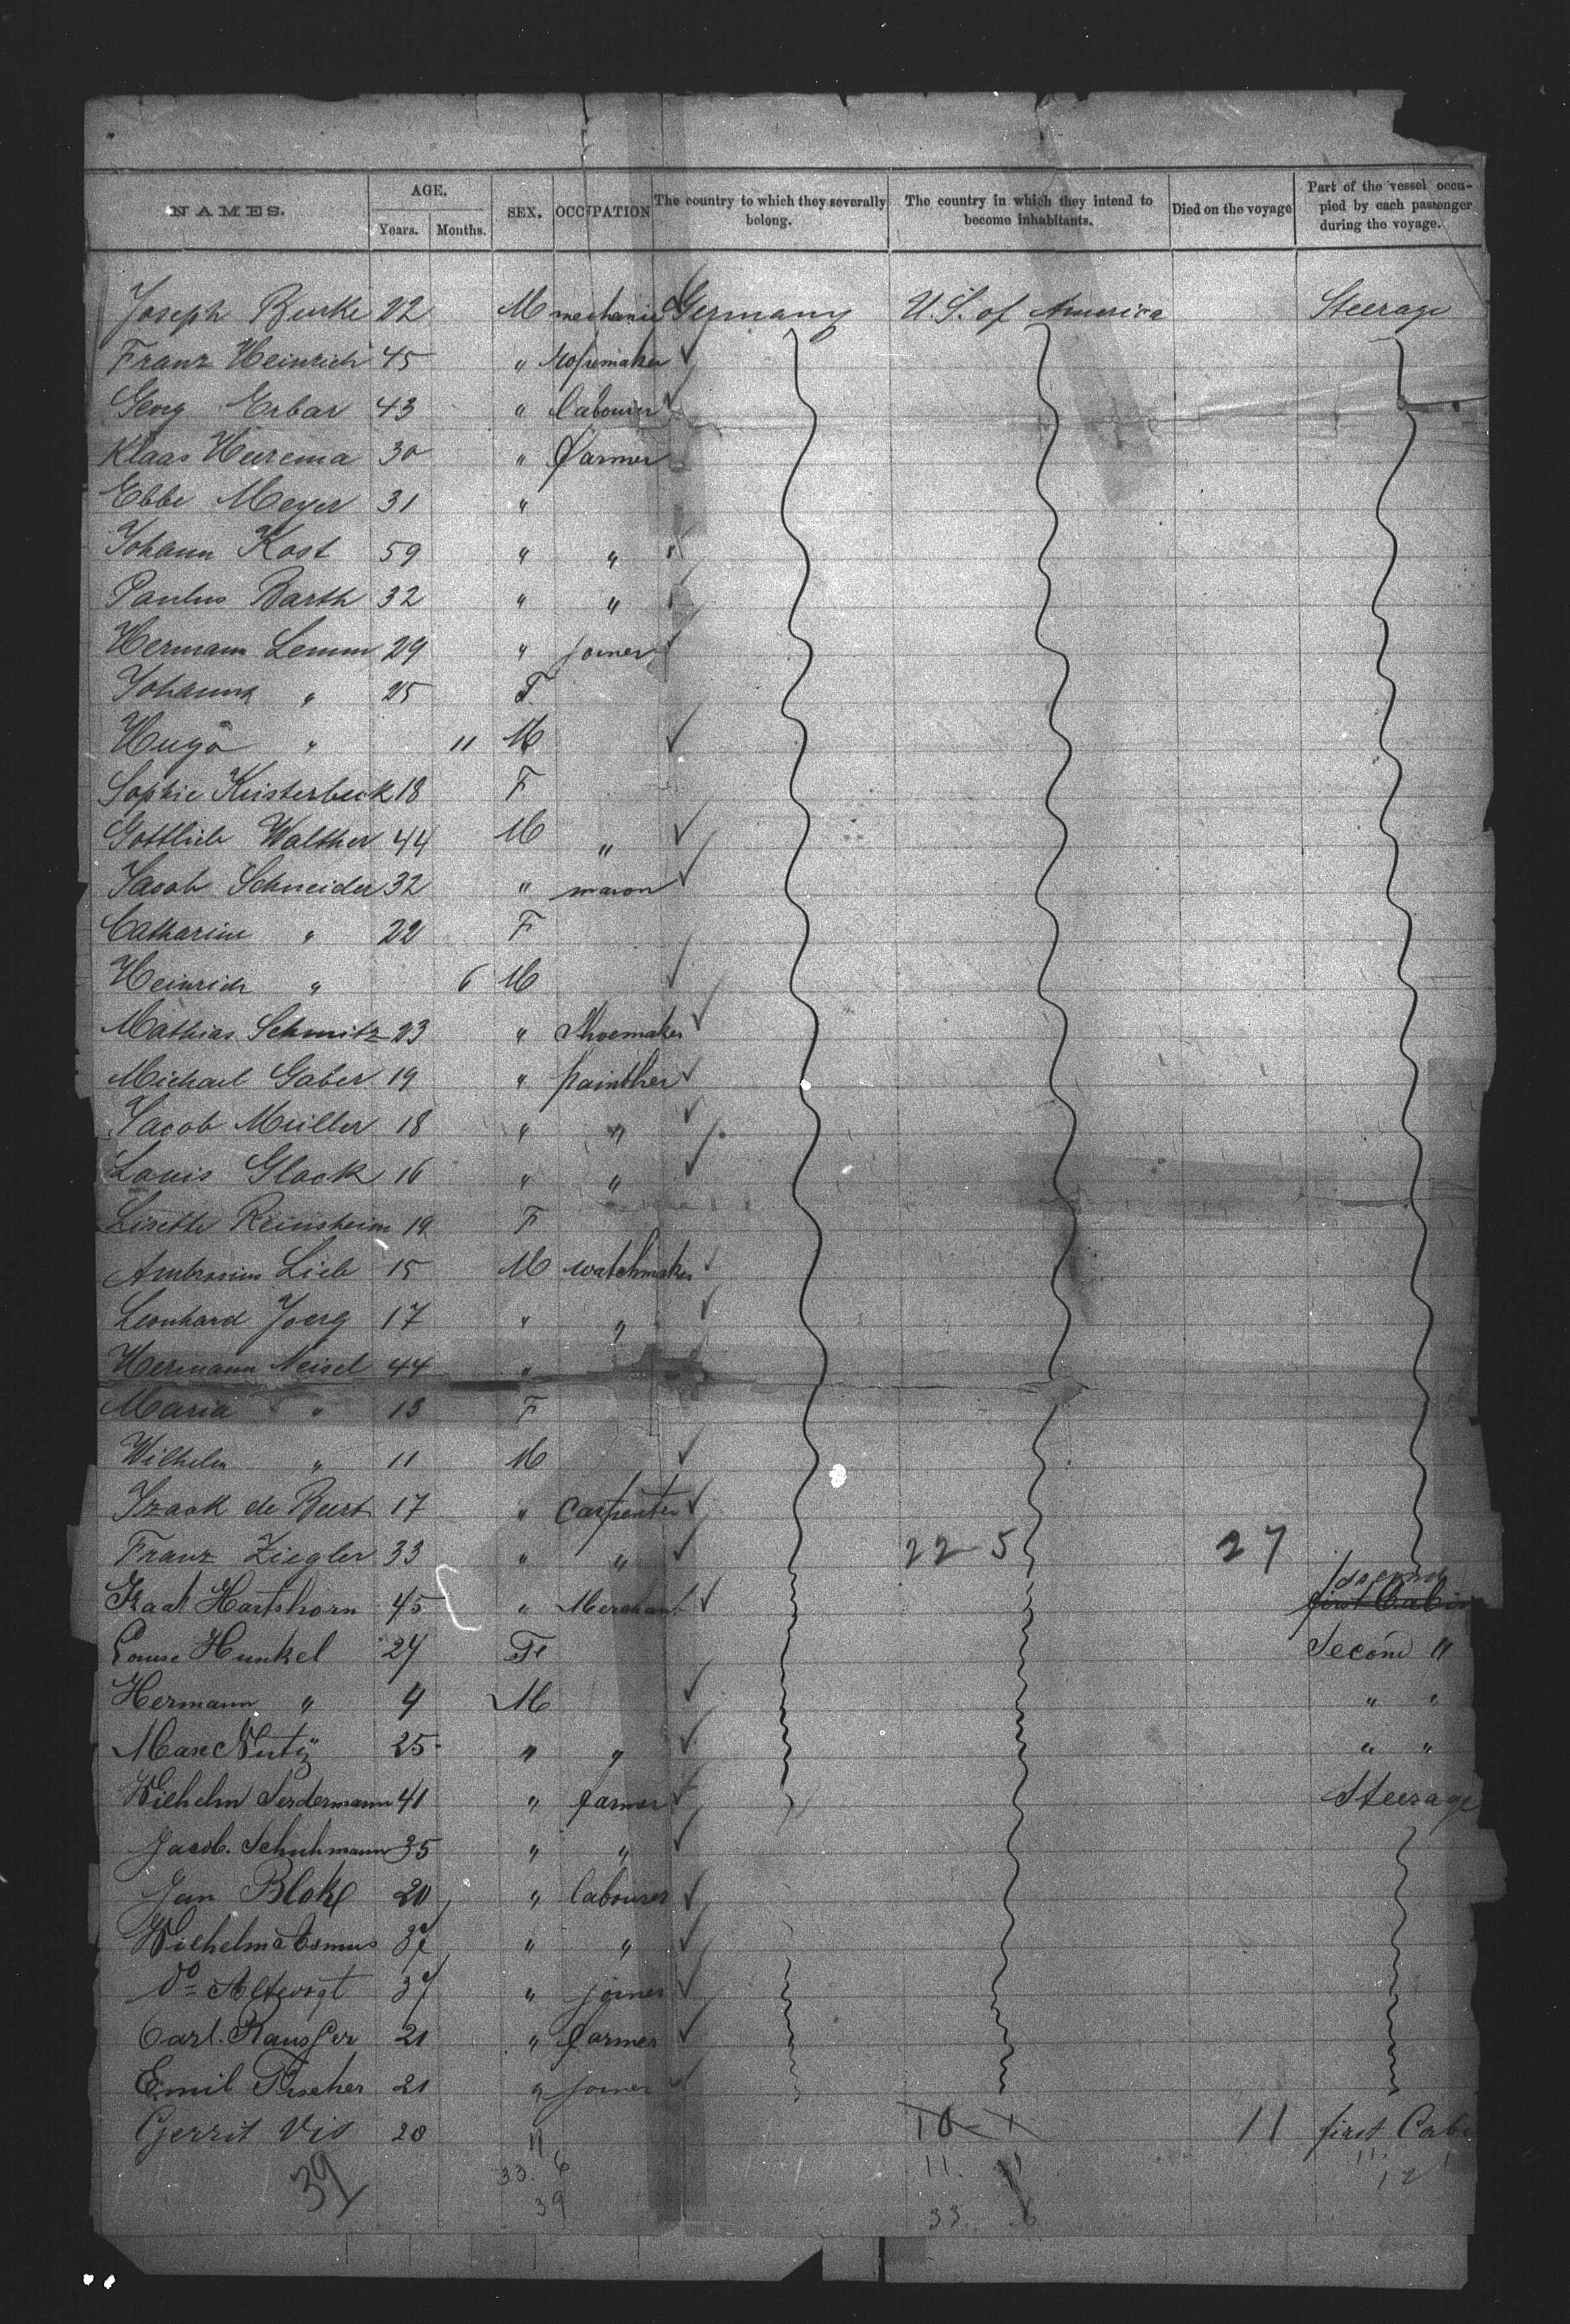 NAMES. AGE. Years. Months. SEX. OCCUPATION The country to which they severally belong. The country in which they intend to become inhabitants. Died on the voyage Part of the vessel occupied by each passenger during the voyage.
Joseph Burke 22 M mechanic Germany U.S. of America Steerage
Franz Heinrich 45 " ropemaker
Georg Erbar 43 " labourer
Klaas Heerema 30 " farmer
Ebbe Meyer 31 "
Johann Kost 59 " "
Paulus Barth 32 " "
Hermann Lemm 29 " joiner
Johanna " 25 F
Hugo " 11 M
Sophie Kusterbeck 18 F
Gottlieb Walther 44 M "
Jacob Schneider 32 " mason
Catharine " 22 F
Heinrich " 6 M
Mathias Schmitz 23 " Shoemaker
Michael Gaber 19 " painther
Jacob Müller 18 " "
Louis Glock 16 " "
Lisette Reinsheim 19 F
Ambrosius Lieb 15 M watchmaker
Leonhard Joerg 17 " "
Hermann Neisel 44 "
Maria " 13 F
Wilhelm " 11 M
Izaak de Buert 17 " Carpenter
Franz Ziegler 33 " " 22 5 27
Hartshorn 45 " Merchant second first Cabin
Louise Hunkel 27 Fe Second "
Hermann " 4 M " "
25 " " " "
Wilhelm Serdermann 41 " farmer Steerage
Jacob. Schuhmann 35 " "
Jan Blok 20 " labourer
Wilhelm 37 " "
do Altvogt 37 " joiner
Carl. 21 " farmer
Emil Fischer 21 " joiner
Gerrit Vis 20 " 10 1 11 first Cabi
39 33. 6 11. 11 12
39 33. 6